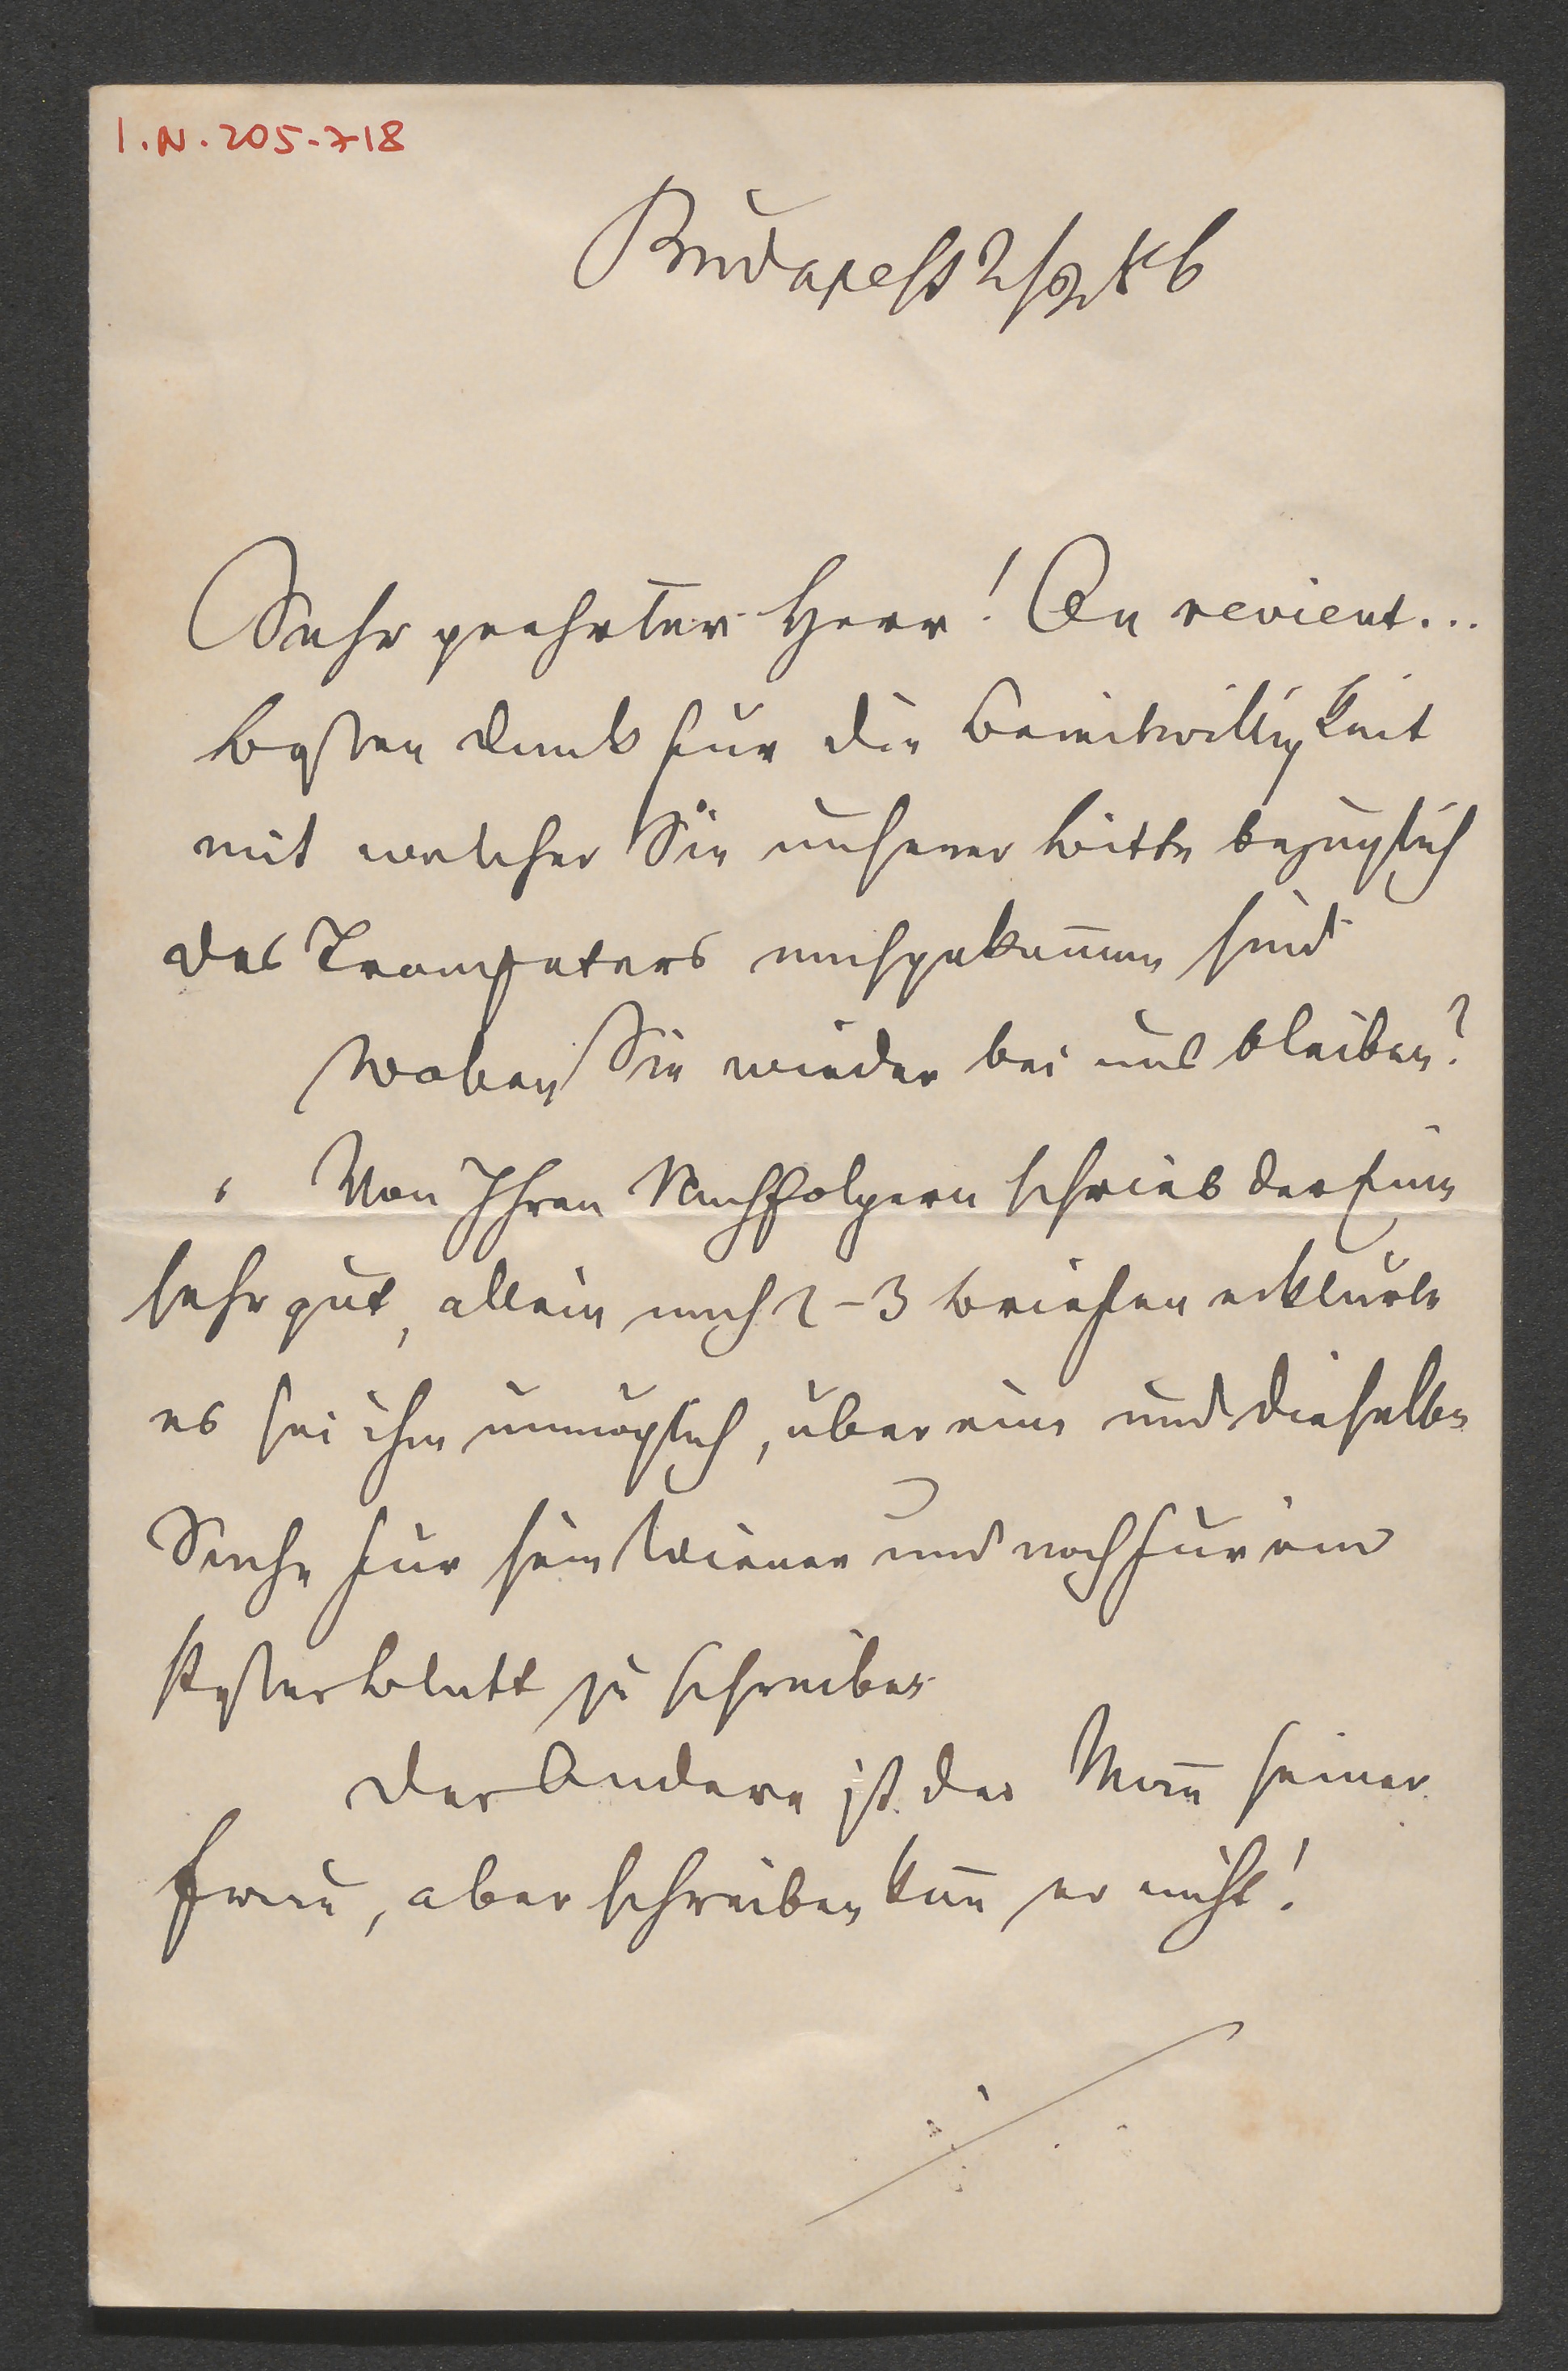 I.N. 205.718
Budapest 2/2 86
Sehr geehrter Herr! On revient...
besten Dank für die Bereitwilligkeit
mit welcher Sie unserer Bitte bezüglich
des Trompeters nachgekom̄en sind
Wollen Sie wieder bei uns bleiben?
Von Ihren Nachfolgern schrieb der Eine
sehr gut, allein nach 2-3 Briefen erklärte
es sei ihm unmöglich, über eine und dieselbe
Sache für sein Wiener und noch für ein
Pester Blatt zu schreiben
Der Andere ist der Man̄ seiner
Frau, aber schreiben kan̄ er nicht!